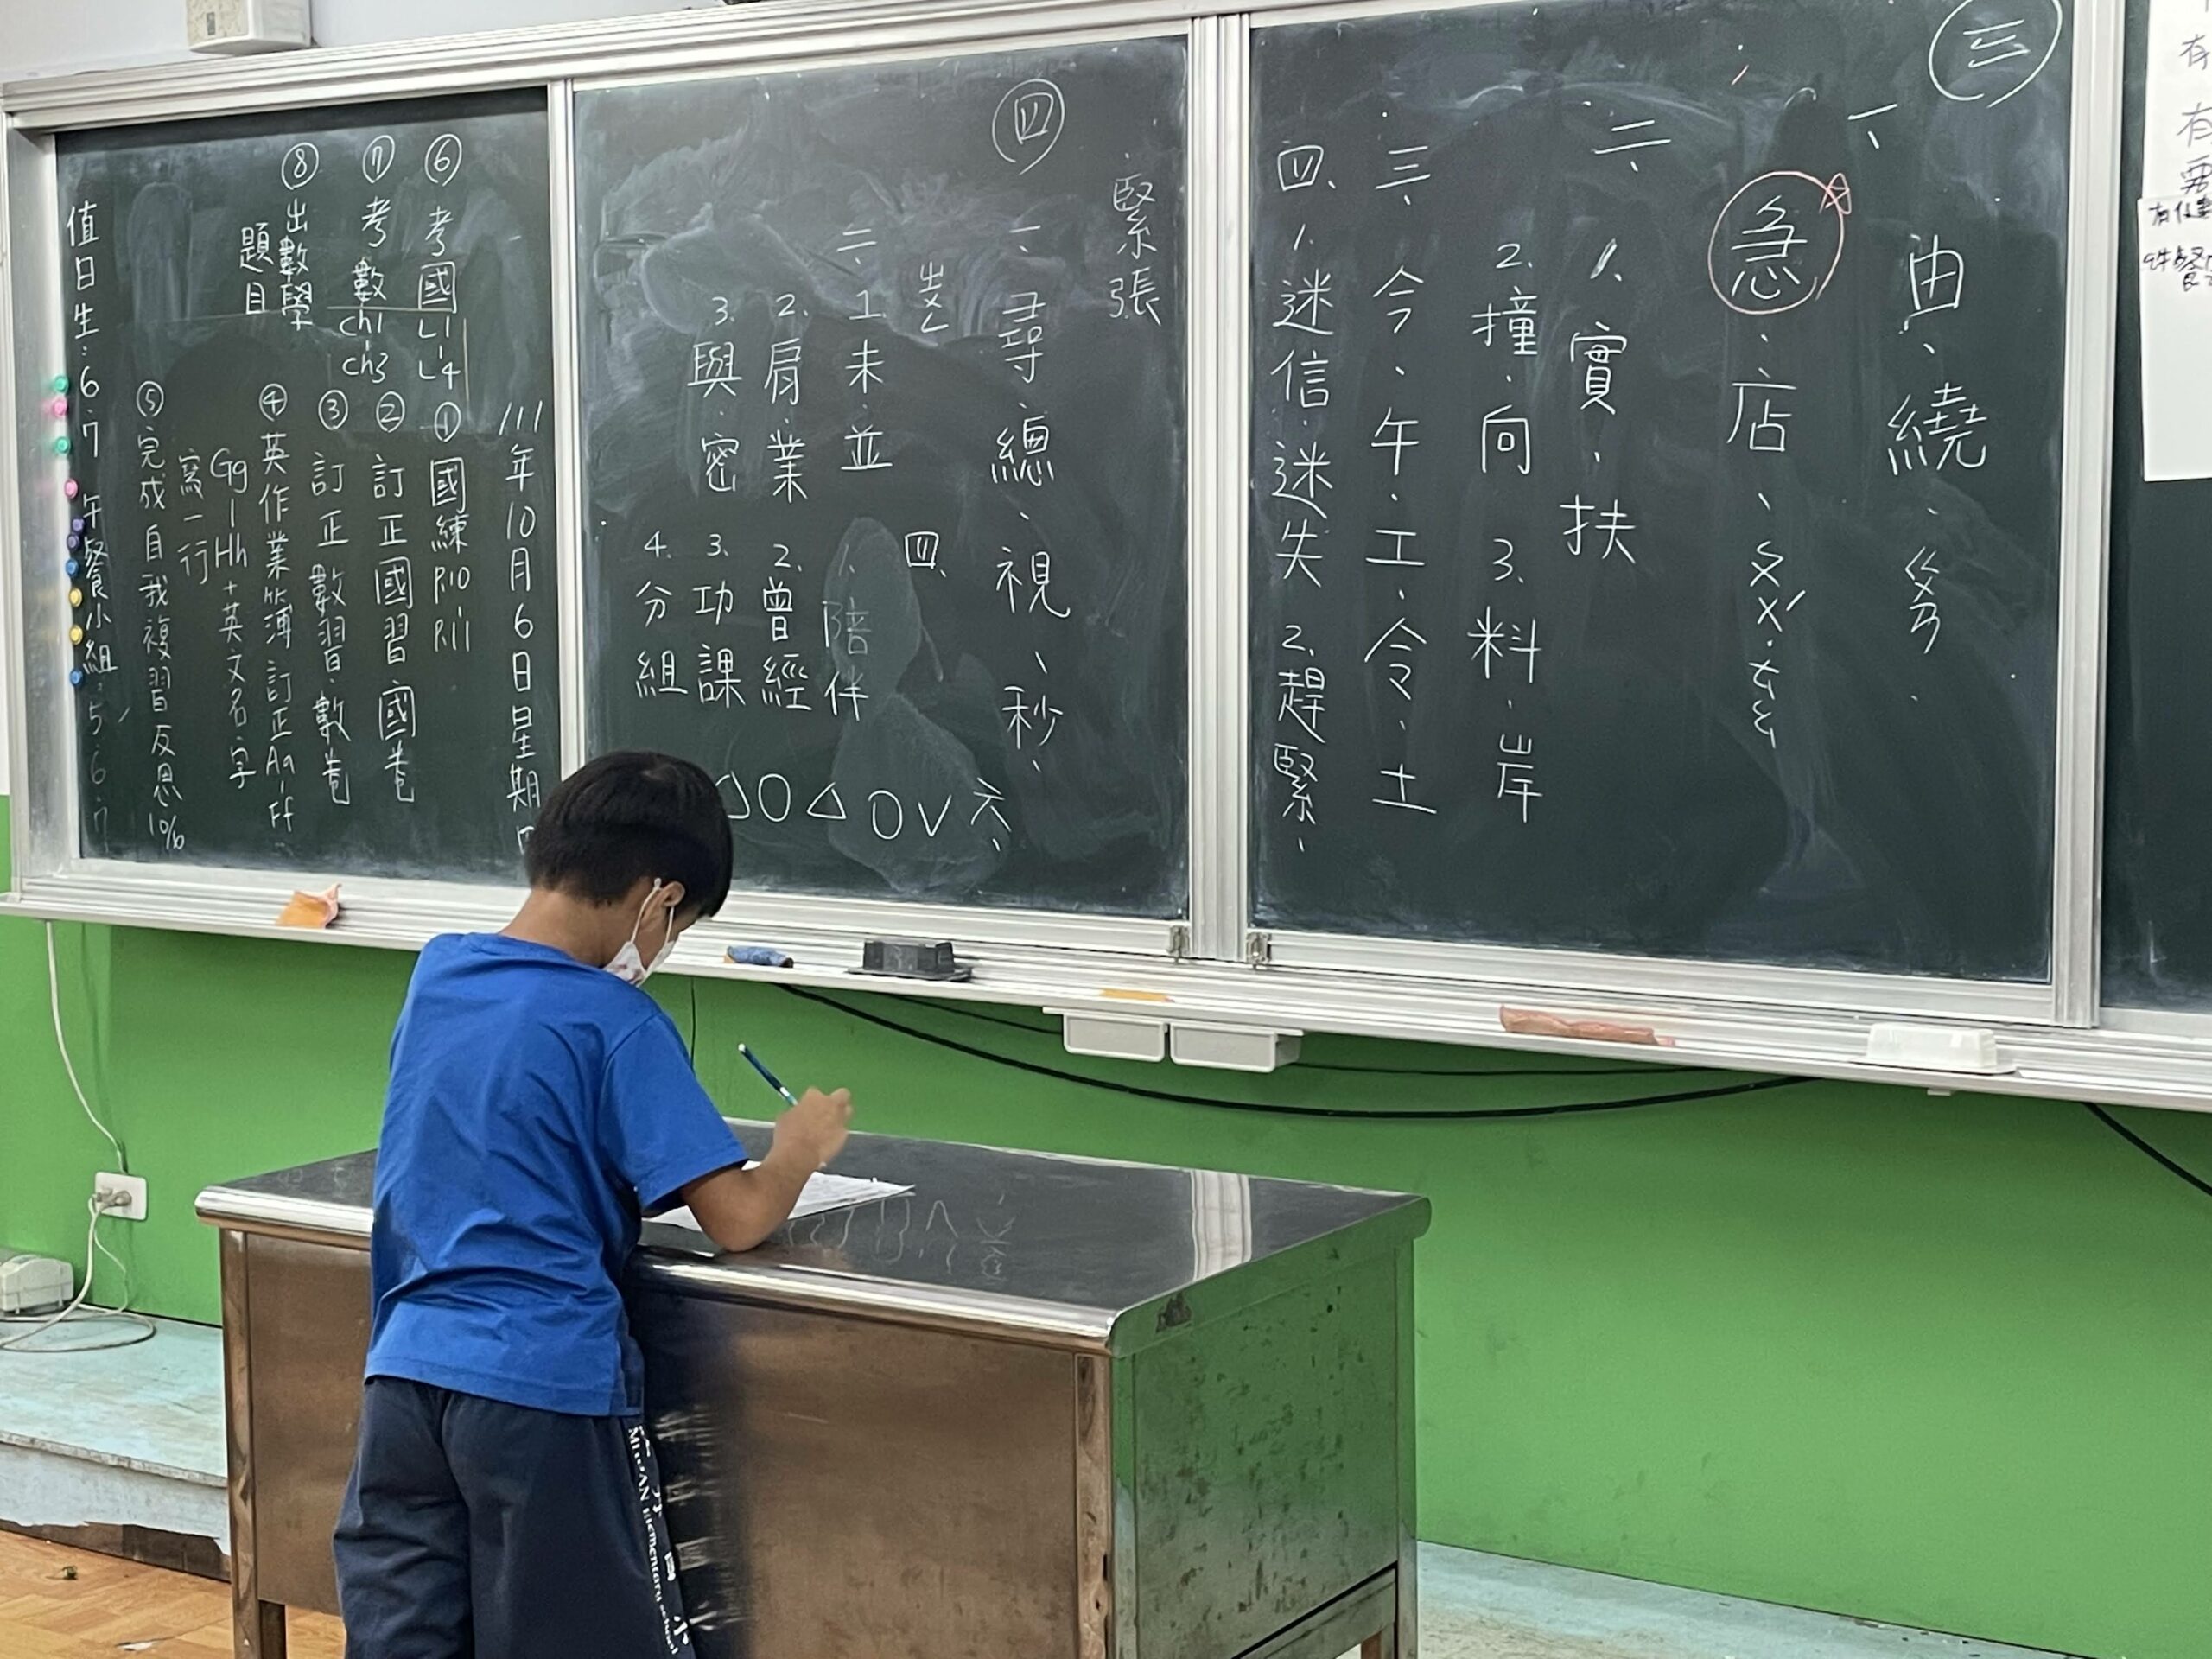 三
一、
由、繞、ㄍㄢ、
急、店、ㄘㄨˊ、ㄊㄜ
二、
1.實、扶
2.撞、向 3.料、岸
三、今、午、工、令、土
四、1.迷信、迷失 2.趕緊、
緊張
四
一、尋、總、視、秒、
ㄓㄨㄥ
二、1.未、並
2.肩、業
3.與、密
四、
1.陪伴
2.曾經
3.功課
4.分組
六、
V○△○△
111年10月6日星期四
①國練P.10-P.11
②訂正國習、國卷
③訂正數習、數卷
④英作業簿訂正Aa-Ff
Gg-Hh+英文名字
寫一行
⑤完成自我複習反思10/6
⑥考國L1-L4
⑦考數ch1-ch3
⑧出數學
題目
值日生:6、7 午餐小組:5、6、7
有
有